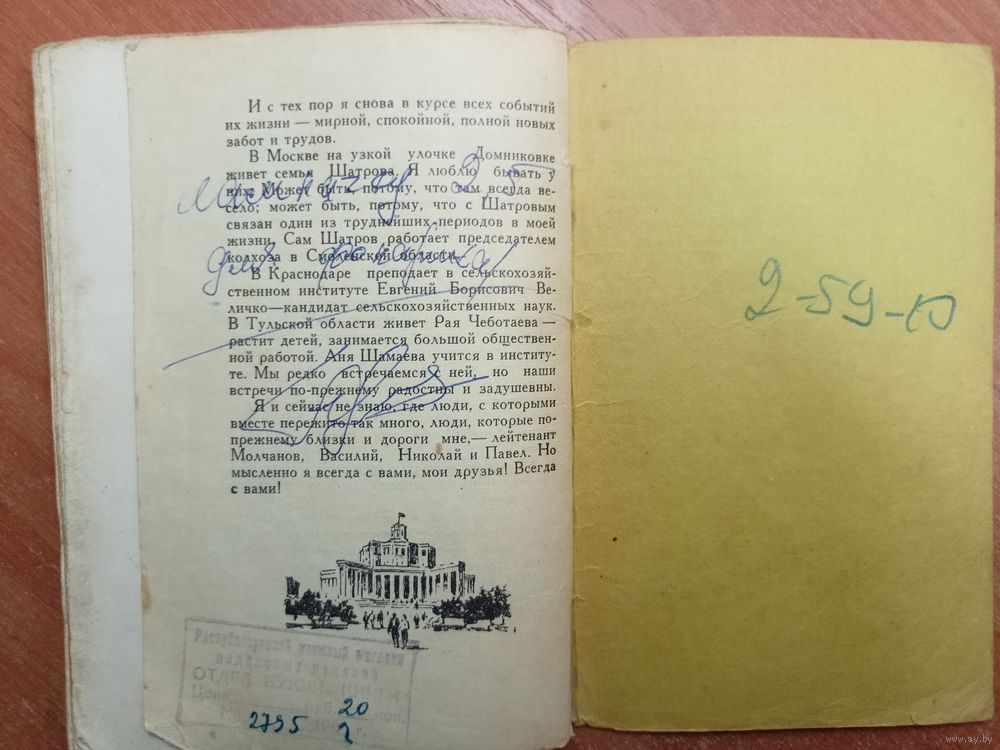 И с тех пор я снова в курсе всех событий
их жизни — мирной, спокойной, полной новых
забот и трудов.
В Москве на узкой улочке Домниковке
живет семья Шатрова. Я люблю бывать у
них. Может быть, потому, что там всегда ве-
село; может быть, потому, что с Шатровым
связан один из труднейших периодов в моей
жизни. Сам Шатров работает председателем
колхоза в Смоленской области.
В Краснодаре преподает в сельскохозяй-
ственном институте Евгений Борисович Ве-
личко—кандидат сельскохозяйственных наук.
В Тульской области живет Рая Чеботаева —
растит детей, занимается большой обществен-
ной работой. Аня Шамаева учится в институ-
те. Мы редко встречаемся с ней, но наши
встречи по-прежнему радостны и задушевны.
Я и сейчас не знаю, где люди, с которыми
вместе пережито так много, люди, которые по-
прежнему близки и дороги мне,— лейтенант
Молчанов, Василий, Николай и Павел. Но
мысленно я всегда с вами, мои друзья! Всегда
с вами!
2,5
для
2-59-10
книжный
ОТДЕЛ
Цена
2795
20
2
www.ay.by